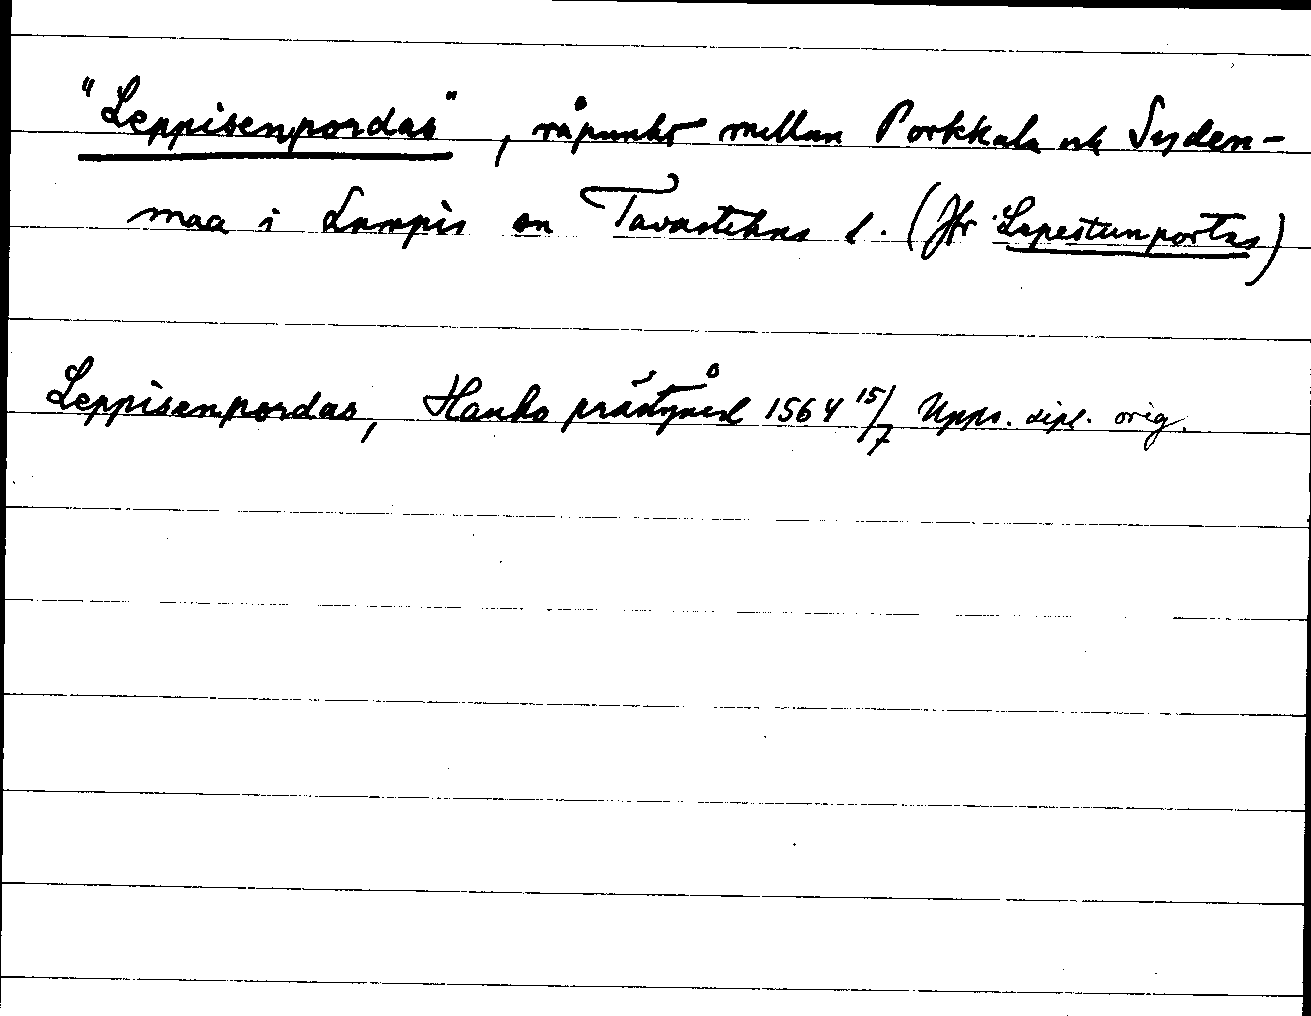 "Leppisenpordas", råpunkt mellan Porkkala och Syden-
maa i Lampis sn Tavastehus l. (Jfr Lapestunportas)
Leppisenpordas, Hauho prästgård 1564 15/7 Upps. dipl. orig.